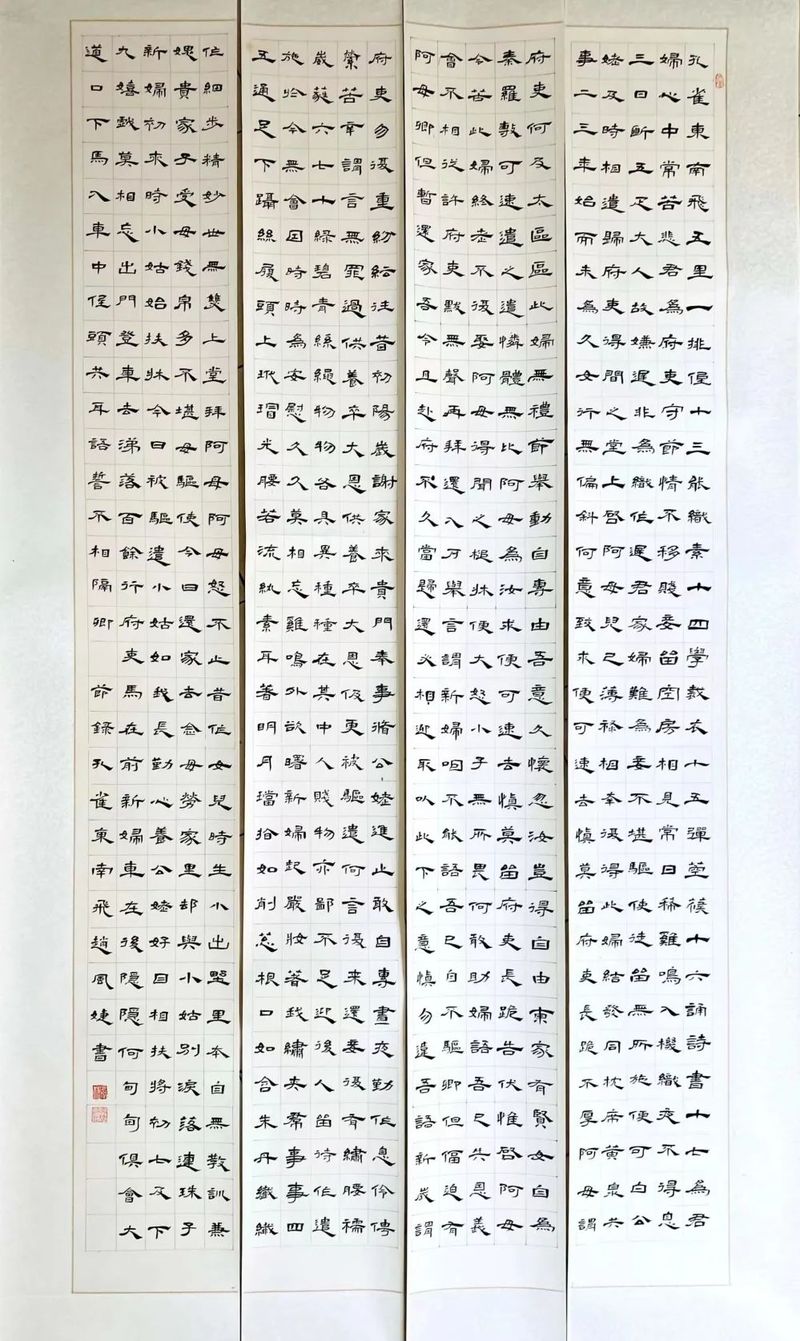 孔雀東南飛五里一徘徊十三能織素十四學裁衣十五彈箜篌十六誦詩書十七為君
婦心中常苦悲君為府吏守節情不移賤妾留空房相見常日稀雞鳴入機織夜不得息
三日斷五疋大人故嫌遲非為織作遲君家婦難為妾不堪驅使徒留無所施便可白公
姥及時相遣歸府吏得聞之堂上啓阿母兒已薄祿相幸復得此婦結髮同枕席黃泉共
事二三年始而未為久女行無偏斜何意致未便可速去慎莫留府吏長跪不厚阿母謂
府吏何及太區區此婦無禮節舉動自專由吾意久懷忽汝豈得自由東家有賢女自為
秦羅敷可速遣之遣憐體無比阿母為汝求便可速去慎莫留府吏長跪告伏惟啓阿母
今若此婦終老不復娶阿母得聞之槌牀便大怒小子無所畏何敢助婦語吾已失恩義
會不相從許府吏默無聲再拜還入戶舉言謂新婦咽不能語吾已自不驅卿但逼迫有
阿母卿但暫還家吾今且赴府不久當歸還必相迎取以此下之意慎勿違吾語新歲謂
府吏勿復重紛紜往昔初陽歲謝家來貴門奉事循公姥進止敢自專晝夜勤作息伶俜
縈苦辛謂言無罪過供養卒大恩供養卒大恩仍更被驅遣何言復來還妾復有繡腰襦
葳蕤六七十綠碧青絲繩物物各具異種種在其中人賤物亦鄙不足迎後人留待作遣
施於今無會因時時為安慰久久莫相忘雞鳴外欲曙新婦起嚴妝著我繡夾裙事事四
五通足下躡絲履頭上玳瑁光腰若流紈素耳著明月璫指如削蔥根口如含朱丹纖纖
作細步精妙世無雙上堂拜阿母阿母怒不止昔作女兒時生小出野里本自無教訓兼
愧貴家子受母錢帛多不堪母驅使今日還家去念母勞家里卻與小姑別淚落連珠子
新婦初來時小姑始扶牀今日被驅遣小姑如我長勤心養公姥好自相扶將初七及下
九嬉戲莫相忘出門登車去涕落百餘行府吏馬在前新婦車在後隱隱何甸甸俱會大
道口下馬入車中低頭共耳語誓不相隔卿 節錄孔雀東南飛趙風婕書